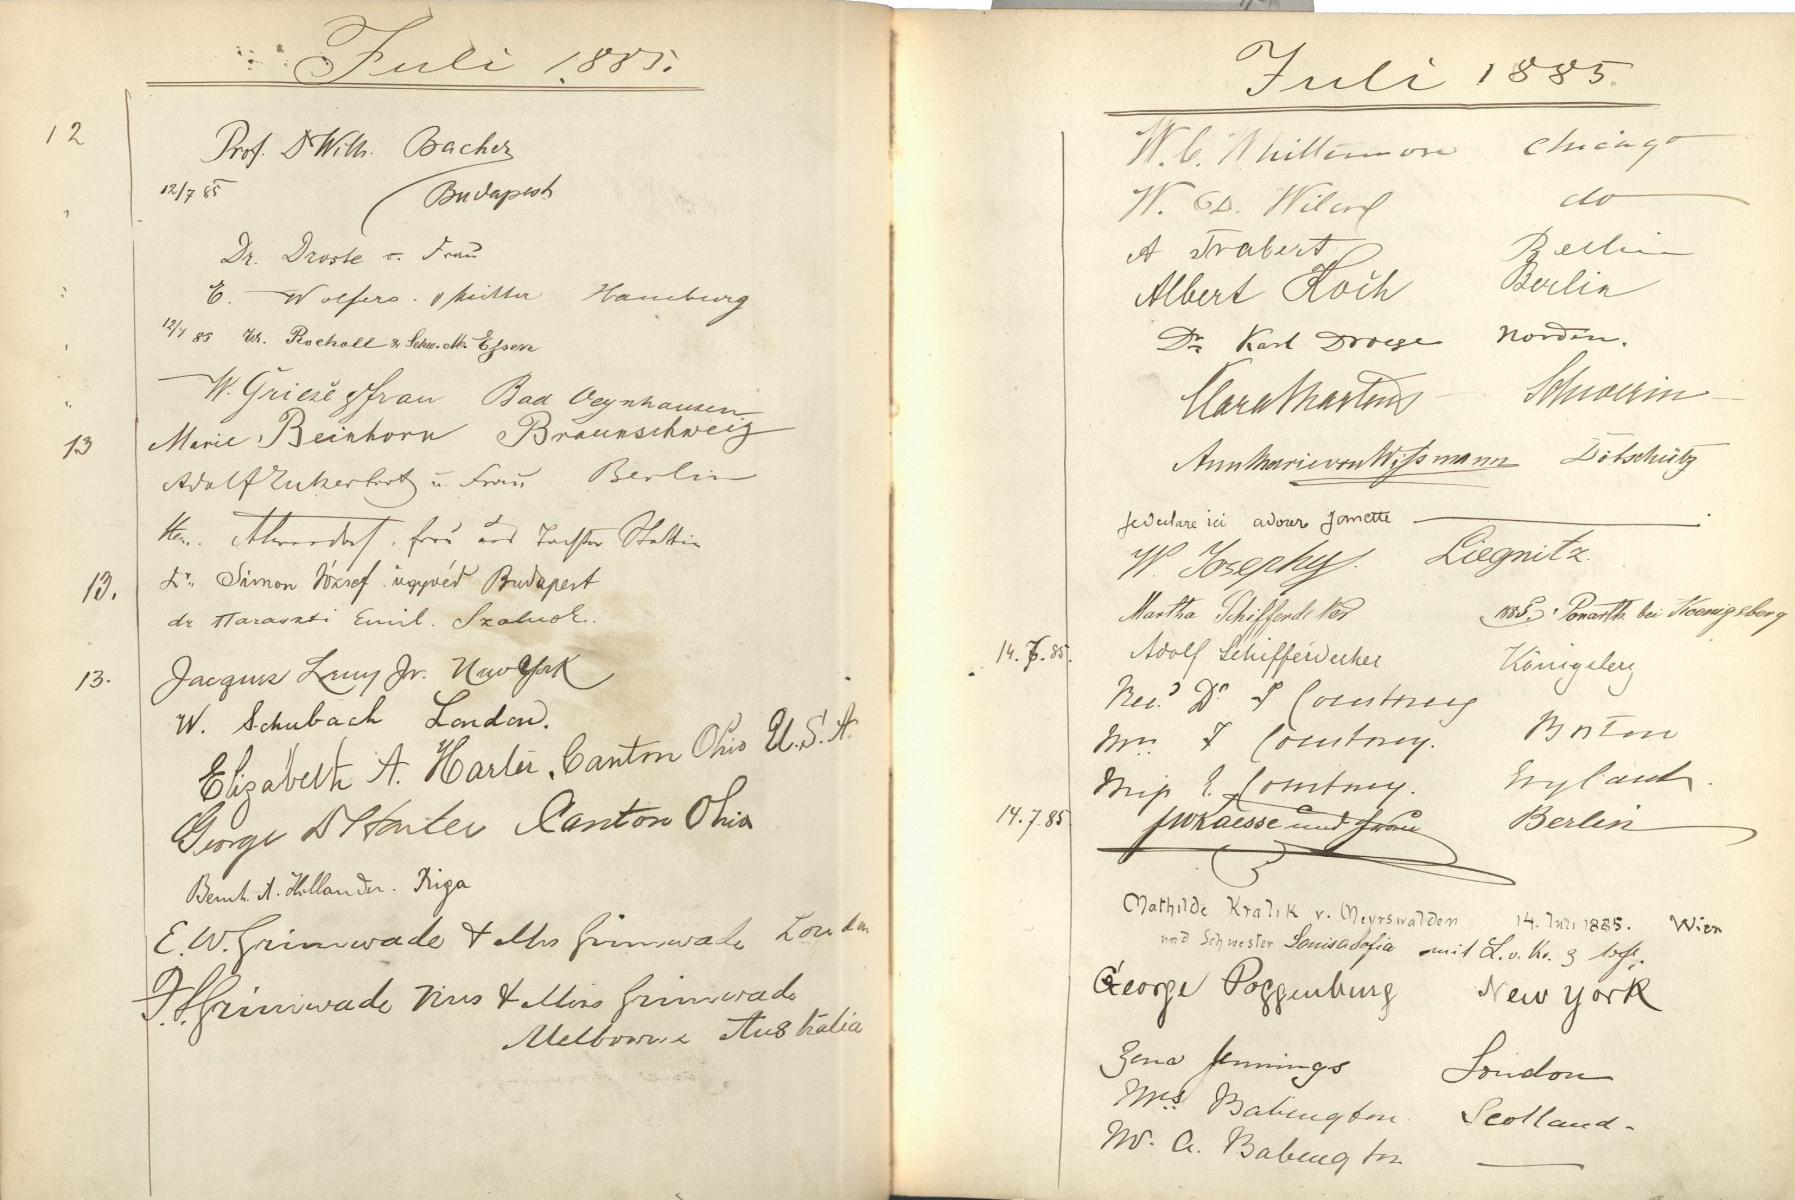 Juli 1885.
12
Prof. Dr Wilh. Bacher
12/7 85 Budapest
Dr. Droste u. Frau
E. Wolfers Hamburg
12/7 85 Dr. Rocholl & Essen
W. Grieze & frau Bad Oeynhausen
13 Marie Beinhorn Braunschweig
Adolf u. Frau Berlin
frau und Tochter Stettin
13. Dr. Simon József ügyvéd Budapest
dr Haraszti Emil. Szolnok.
13. Jacques Levy Jr. New York
W. Schubach London.
Elizabeth A. Harter, Canton Ohio U.S.A.
George D Harter Canton Ohio
Bernh. A. Hollander. Riga
E. W. Grimwade & Mrs Grimwade London
F. S. Grimwade Mrs & Miss Grimwade
Melbourne Australia
Juli 1885.
W. C. Whittemore Chicago
W. D. do
A Trabert Berlin
Albert Koch Berlin
Dr Karl Droege Norden.
Clara Martens Schwerin
Annmarie von Wißmann Dötschütz
je declare ici
W. Josephy. Liegnitz.
Martha Schifferdecker Ponarth bei Koenigsberg
14.7.85. Adolf Schifferdecker Königsberg
Rev.d Dr. F Courtney
Mrs. F Courtney. Boston
Miss E. Courtney. England.
14.7.85 und Frau Berlin
Mathilde Kralik v. Meyrswalden 14. Juli 1885. Wien
und Schwester Louisa Sofia mit L. v. Kr.
George Poggenburg New York
Jennings London
Mrs. Babington Scotland.
W. A. Babington